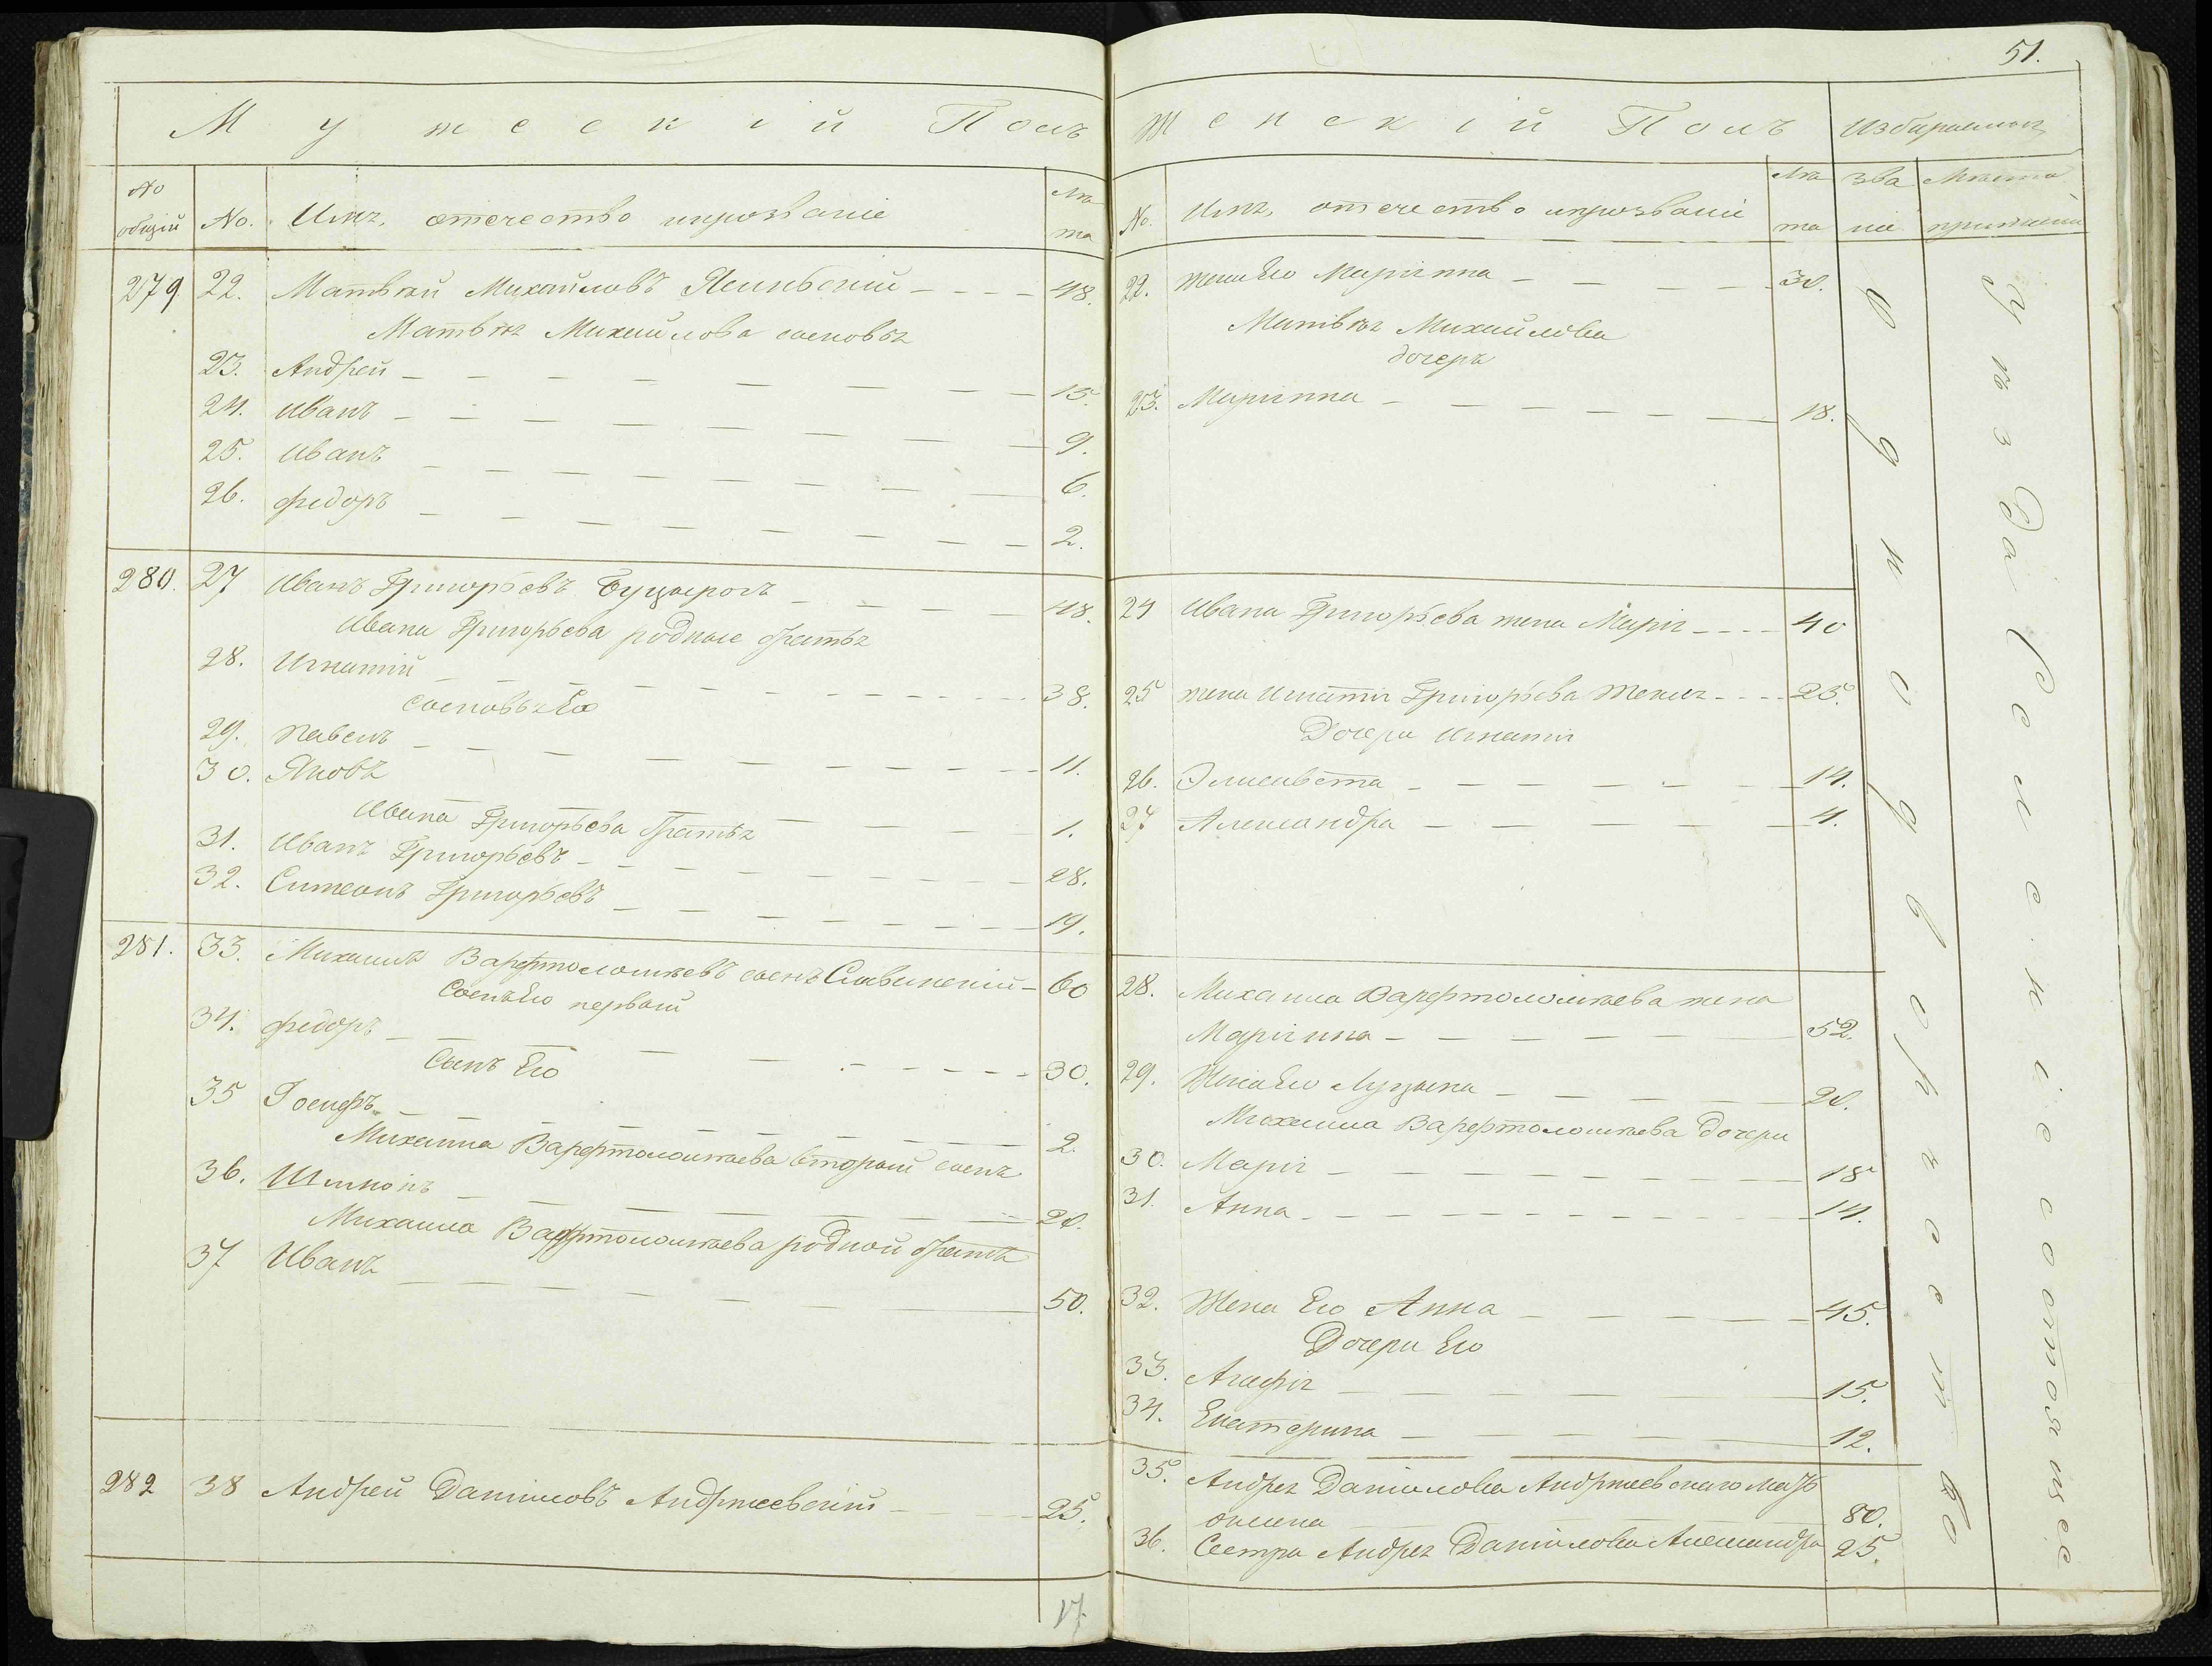 51.
Мужескій Полъ
No общій No. Имя, отечество ипрозваніе Лѣта
279 22. Матвѣй Михайловъ Ясинскій 48.
Матвѣя Михайлова сыновья
23. Андрей 15.
24. Иванъ 9.
25. Иванъ 6.
26. Федоръ 2.
280. 27 Иванъ Григорьевъ 48.
Ивана Григорьева родные братья
28. Игнатій 38.
Сыновья Его
29. Павелъ 11.
30. Яковъ 1.
Ивана Григорьева братья
31. Иванъ Григорьевъ 28.
32. Симеонъ Григорьевъ 19.
281. 33. Михаилъ Варфтоломѣевъ сынъ Славинскій 60
Сынъ Его первый
34. Федоръ 30.
Сынъ Его
35 Іосифъ 2.
Михаила Варфтоломѣева вторый сынъ
36. 20.
Михаила Варфтоломѣева родной братъ
37 Иванъ 50.
282 38 Андрей Даниловъ Андржеевскій 25.
17.
Женскій Полъ Избираемыя
No. Имя, отечество ипрозваніе Лѣта Званіе Мѣста
22. Жена Его Маріанна 30.
Матвѣя Михайлова
дочеръ
23. Маріанна 18.
24 Ивана Григорьева жена Марія 40
25 жена Игнатія Григорьева Текля 25.
Дочери Игнатія
26. Элисавета 14.
27 Александра 4.
28. Михаила Варфтоломѣева жена
Маріанна 52.
29. Жена Его Луцыя 20.
Михаила Варфтоломѣева дочери
30. Марія 18
31. Анна 14.
32. Жена Его Анна 45.
Дочери Его
33. Агафія 15.
34. Екатерина 12.
35. Андрея Данилова Андржеевскаго мать
80.
36. Сестра Андрея Данилова Александра 25.
Однодворчество